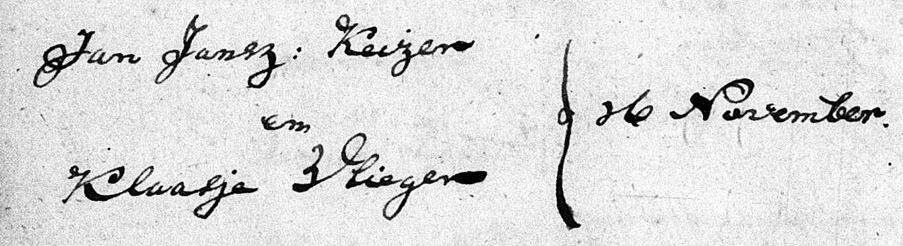 Jan Jansz: Keizer
en
Klaasje Vlieger
26 November.